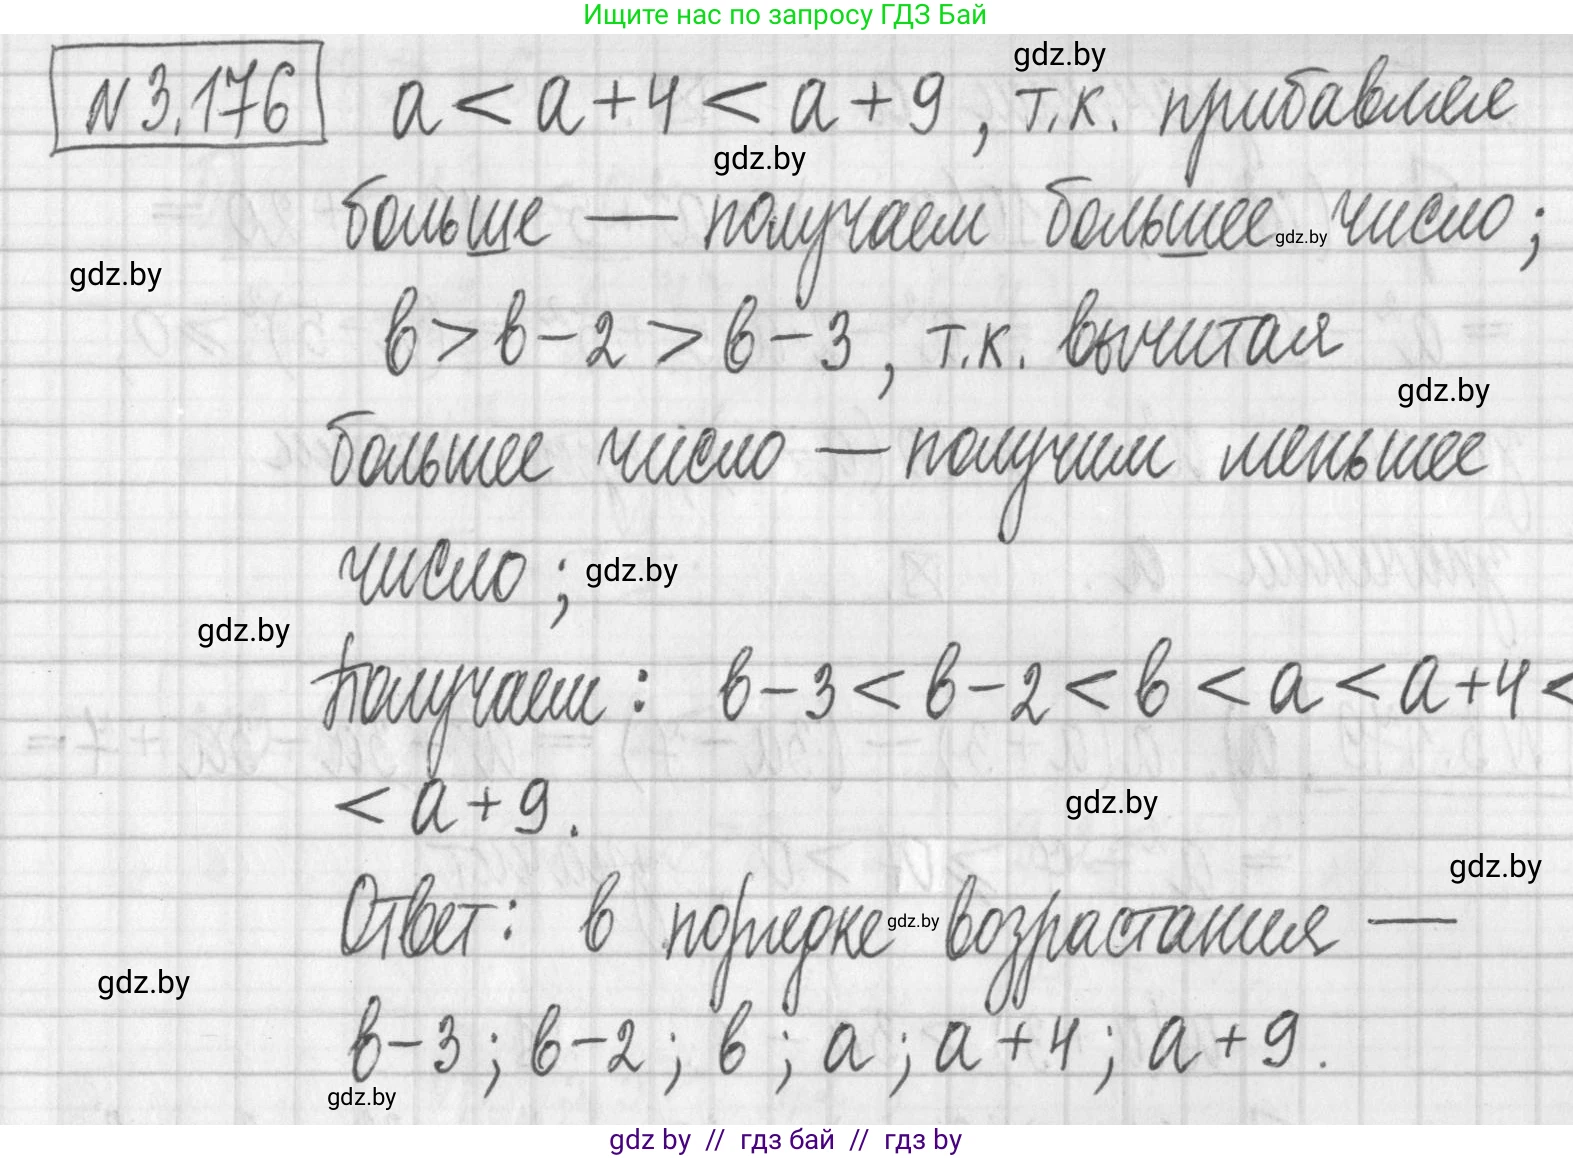 Ищите нас по запросу ГДЗ Бай
gdz.by
N 3.176 a < a + 4 < a + 9 , т.к. прибавляя
gdz.by
больше — получаем большее число ;
gdz.by
gdz.by
в > в - 2 > в - 3 , т.к. вычитая
gdz.by
большее число — получим меньшее
число ;
gdz.by
gdz.by
Получаем : в - 3 < в - 2 < в < a < a + 4 <
< a + 9 .
gdz.by
gdz.by
Ответ : в порядке возрастания —
gdz.by
gdz.by
в - 3 ; в - 2 ; в ; a ; a + 4 ; a + 9 .
gdz.by
gdz by // гдз бай // гдз by